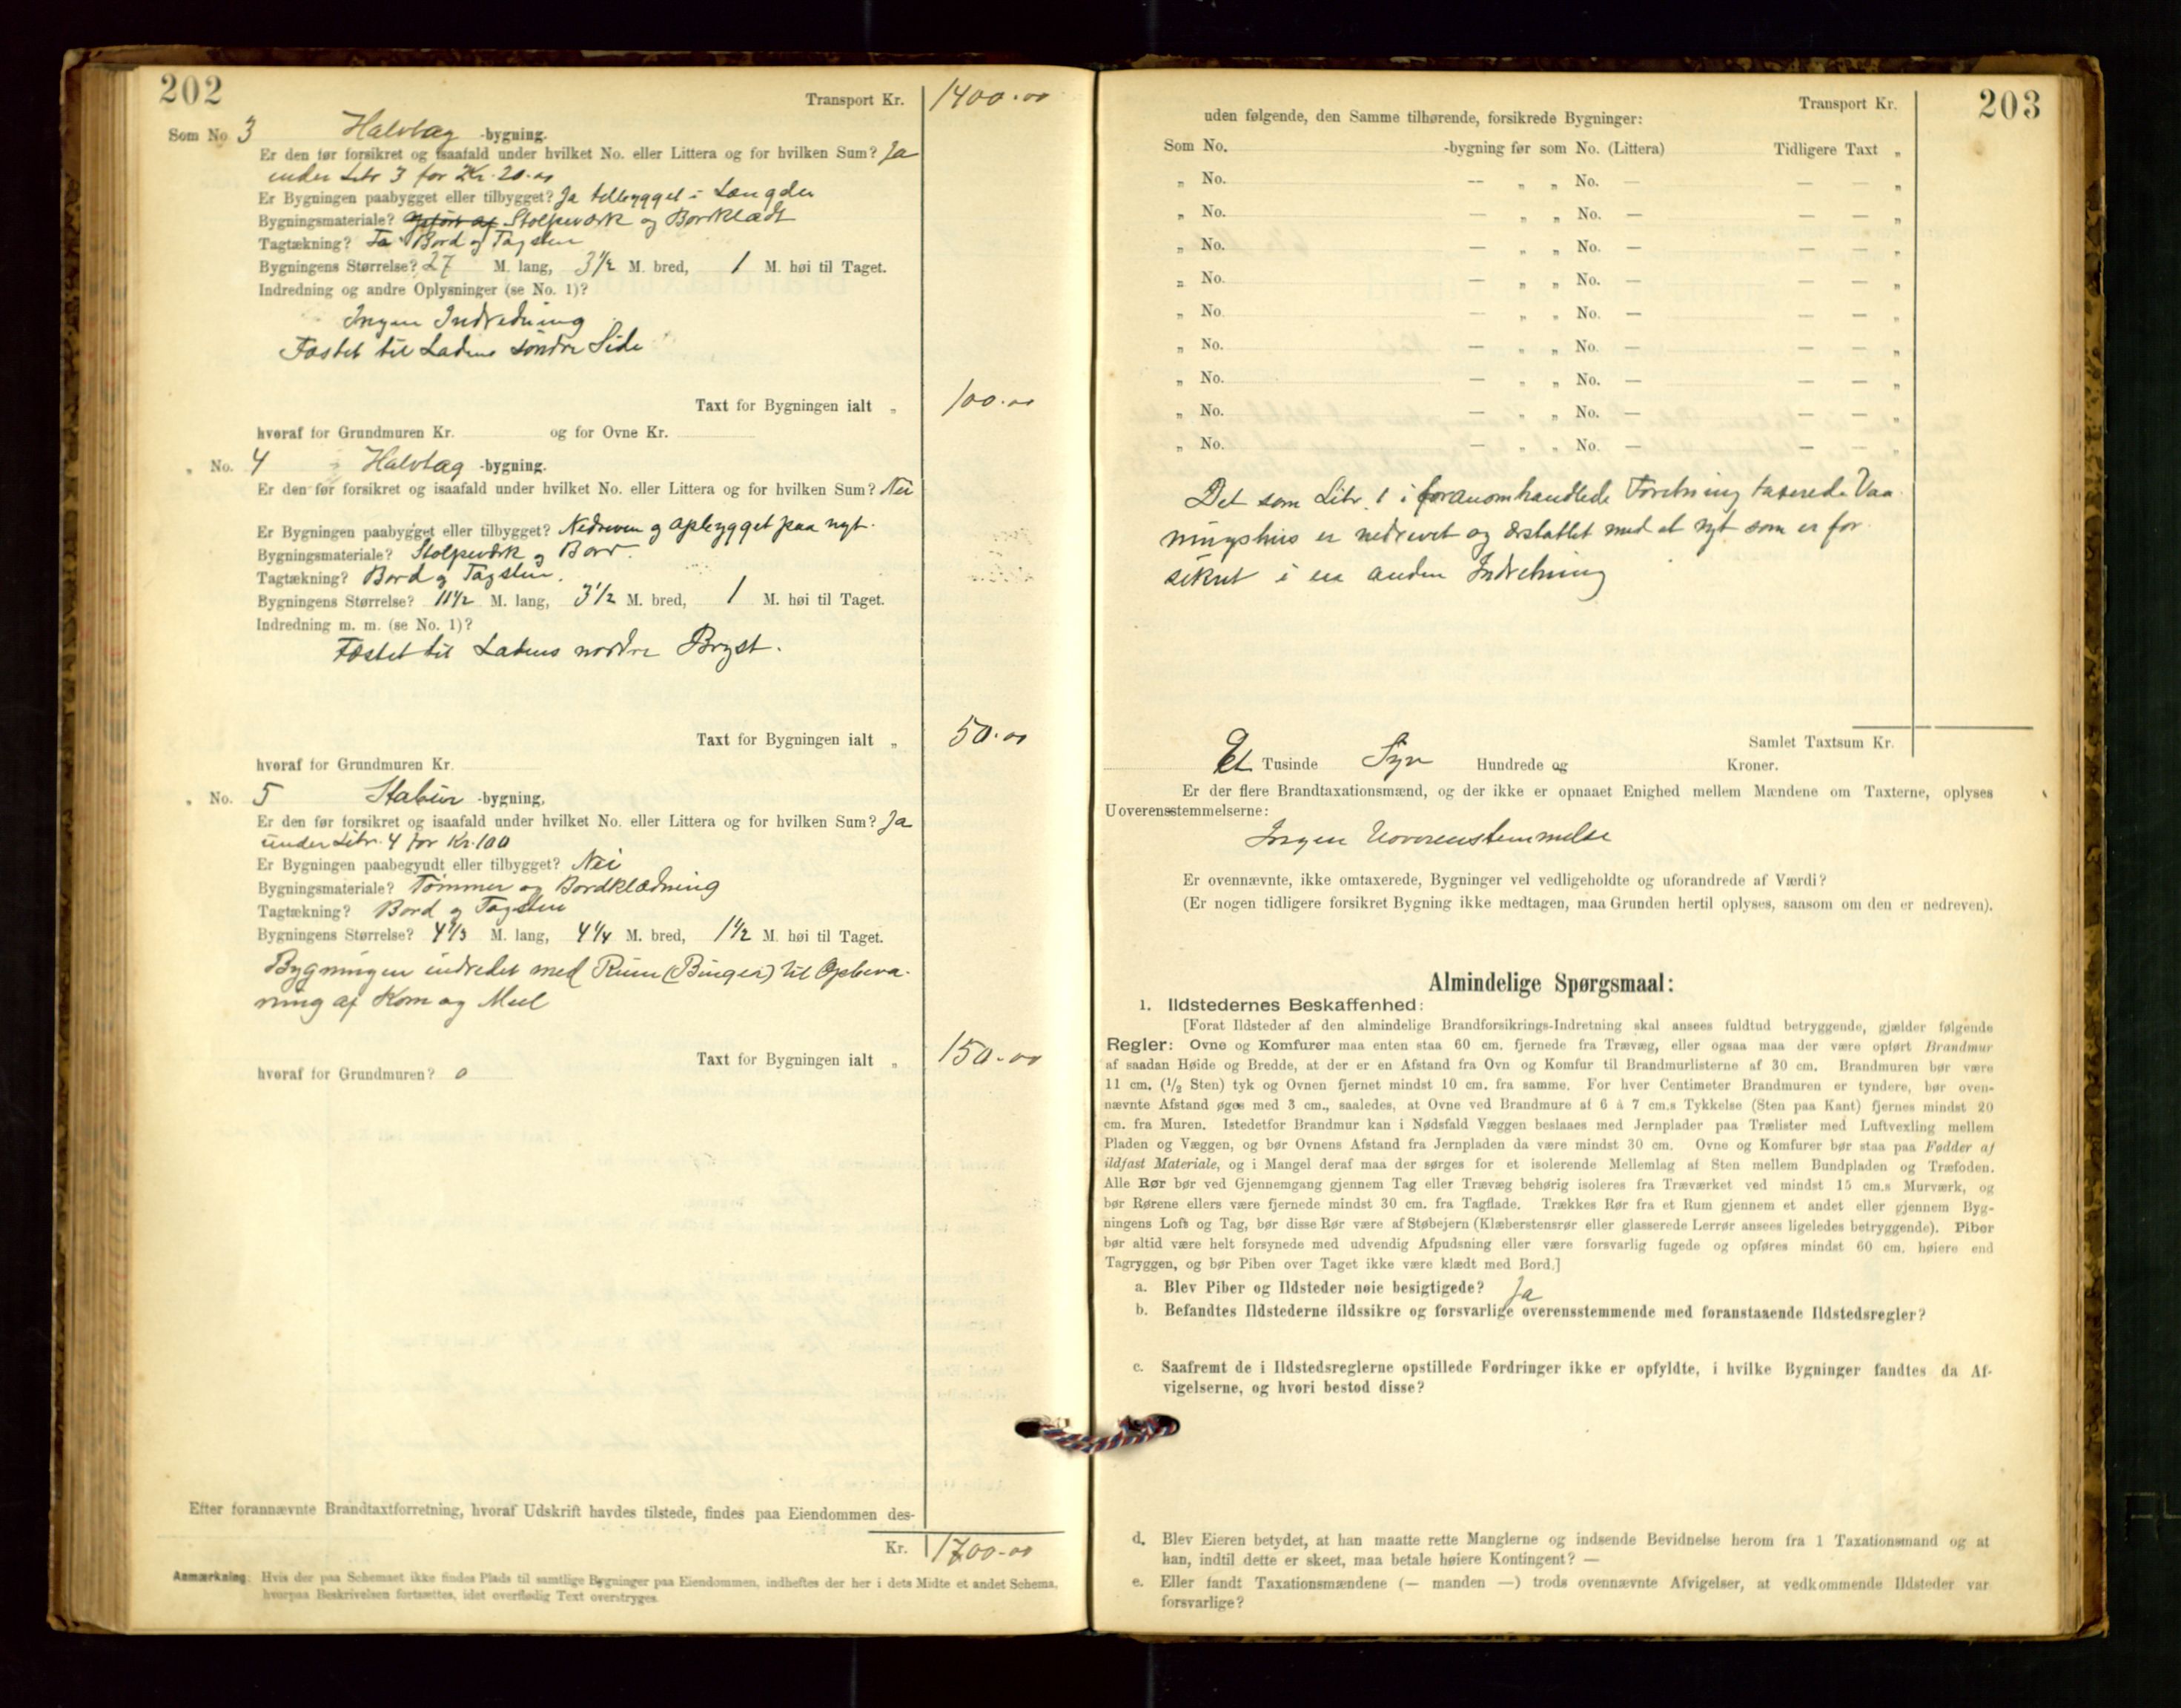 202
Transport Kr. 1400.00
Som No 3 Halvtag -bygning.
Er den før forsikret og isaafald under hvilket No. eller Littera og for hvilken Sum? Ja
under Litr 3 for Kr. 20.00
Er Bygningen paabygget eller tilbygget? Ja tilbygget i Længden
Bygningsmateriale? Stolpeværk og Bordklædt
Tagtækning? Bord og Tagsten
Bygningens Størrelse? 27 M. lang, 3 1/2 M. bred, 1 M. høi til Taget.
Indredning og andre Oplysninger (se No. 1)?
Ingen Indredning
Fæstet til Ladens søndre Side
Taxt for Bygningen ialt „ 100.00
hvoraf for Grundmuren Kr. og for Ovne Kr.
„ No. 4 Halvtag -bygning.
Er den før forsikret og isaafald under hvilket No. eller Littera og for hvilken Sum? Nei
Er Bygningen paabygget eller tilbygget? Nedreven og opbygget paa nyt.
Bygningsmateriale? Stolpeværk og Bord.
Tagtækning? Bord og Tagsten.
Bygningens Størrelse? 11 1/2 M. lang, 3 1/2 M. bred, 1 M. høi til Taget.
Indredning m. m. (se No. 1)?
Fæstet til Ladens nordre Bryst.
Taxt for Bygningen ialt „ 50.00
hvoraf for Grundmuren Kr.
„ No. 5 Stabur -bygning,
Er den før forsikret og isaafald under hvilket No. eller Littera og for hvilken Sum? Ja
under Litr. 4 for Kr. 100
Er Bygningen paabegyndt eller tilbygget? Nei
Bygningsmateriale? Tømmer og Bordklædning
Tagtækning? Bord og Tagsten
Bygningens Størrelse? 4 1/3 M. lang, 4 1/4 M. bred, 1 1/2 M. høi til Taget.
Bygningen indredet med Rum (Binger) til Opbeva-
ring af Korn og Meel
Taxt for Bygningen ialt „ 150.00
hvoraf for Grundmuren? 0
Efter forannævnte Brandtaxtforretning, hvoraf Udskrift havdes tilstede, findes paa Eiendommen des-
Kr. 1700.00
Anmærkning: Hvis der paa Schemaet ikke findes Plads til samtlige Bygninger paa Eiendommen, indheftes der her i dets Midte et andet Schema,
hvorpaa Beskrivelsen fortsættes, idet overflødig Text overstryges.
203
Transport Kr.
uden følgende, den Samme tilhørende, forsikrede Bygninger:
Som No. -bygning før som No. (Littera) Tidligere Taxt „
„ No. — „ „ No. — — — „
„ No. — „ „ No. — — — „
„ No. — „ „ No. — — — „
„ No. — „ „ No. — — — „
„ No. — „ „ No. — — — „
„ No. — „ „ No. — — — „
„ No. — „ „ No. — — — „
„ No. — „ „ No. — — — „
„ No. — „ „ No. — — — „
Det som Litr. 1 i foranomhandlede Forretning taxerede Vaa-
ningshus er nedrevet og erstattet med et nyt som er for-
sikret i en anden Indretning
Samlet Taxtsum Kr.
Et Tusinde Syv Hundrede og Kroner.
Er der flere Brandtaxationsmænd, og der ikke er opnaaet Enighed mellem Mændene om Taxterne, oplyses
Uoverensstemmelserne:
Ingen Uoverenstemmelse
Er ovennævnte, ikke omtaxerede, Bygninger vel vedligeholdte og uforandrede af Værdi?
(Er nogen tidligere forsikret Bygning ikke medtagen, maa Grunden hertil oplyses, saasom om den er nedreven).
Almindelige Spørgsmaal:
1. Ildstedernes Beskaffenhed:
[Forat Ildsteder af den almindelige Brandforsikrings-Indretning skal ansees fuldtud betryggende, gjælder følgende
Regler: Ovne og Komfurer maa enten staa 60 cm. fjernede fra Trævæg, eller ogsaa maa der være opført Brandmur
af saadan Høide og Bredde, at der er en Afstand fra Ovn og Komfur til Brandmurlisterne af 30 cm. Brandmuren bør være
11 cm. (1/2 Sten) tyk og Ovnen fjernet mindst 10 cm. fra samme. For hver Centimeter Brandmuren er tyndere, bør oven-
nævnte Afstand øges med 3 cm., saaledes, at Ovne ved Brandmure af 6 à 7 cm.s Tykkelse (Sten paa Kant) fjernes mindst 20
cm. fra Muren. Istedetfor Brandmur kan i Nødsfald Væggen beslaaes med Jernplader paa Trælister med Luftvexling mellem
Pladen og Væggen, og bør Ovnens Afstand fra Jernpladen da være mindst 30 cm. Ovne og Komfurer bør staa paa Fødder af
ildfast Materiale, og i Mangel deraf maa der sørges for et isolerende Mellemlag af Sten mellem Bundpladen og Træfoden.
Alle Rør bør ved Gjennemgang gjennem Tag eller Trævæg behørig isoleres fra Træværket ved mindst 15 cm.s Murværk, og
bør Rørene ellers være fjernede mindst 30 cm. fra Tagflade. Trækkes Rør fra et Rum gjennem et andet eller gjennem Byg-
ningens Loft og Tag, bør disse Rør være af Støbejern (Klæberstensrør eller glasserede Lerrør ansees ligeledes betryggende). Piber
bør altid være helt forsynede med udvendig Afpudsning eller være forsvarlig fugede og opføres mindst 60 cm. høiere end
Tagryggen, og bør Piben over Taget ikke være klædt med Bord.]
a. Blev Piber og Ildsteder nøie besigtigede? Ja
b. Befandtes Ildstederne ildssikre og forsvarlige overensstemmende med foranstaaende Ildstedsregler?
c. Saafremt de i Ildstedsreglerne opstillede Fordringer ikke er opfyldte, i hvilke Bygninger fandtes da Af-
vigelserne, og hvori bestod disse?
d. Blev Eieren betydet, at han maatte rette Manglerne og indsende Bevidnelse herom fra 1 Taxationsmand og at
han, indtil dette er skeet, maa betale høiere Kontingent? —
e. Eller fandt Taxationsmændene (— manden —) trods ovennævnte Afvigelser, at vedkommende Ildsteder var
forsvarlige?